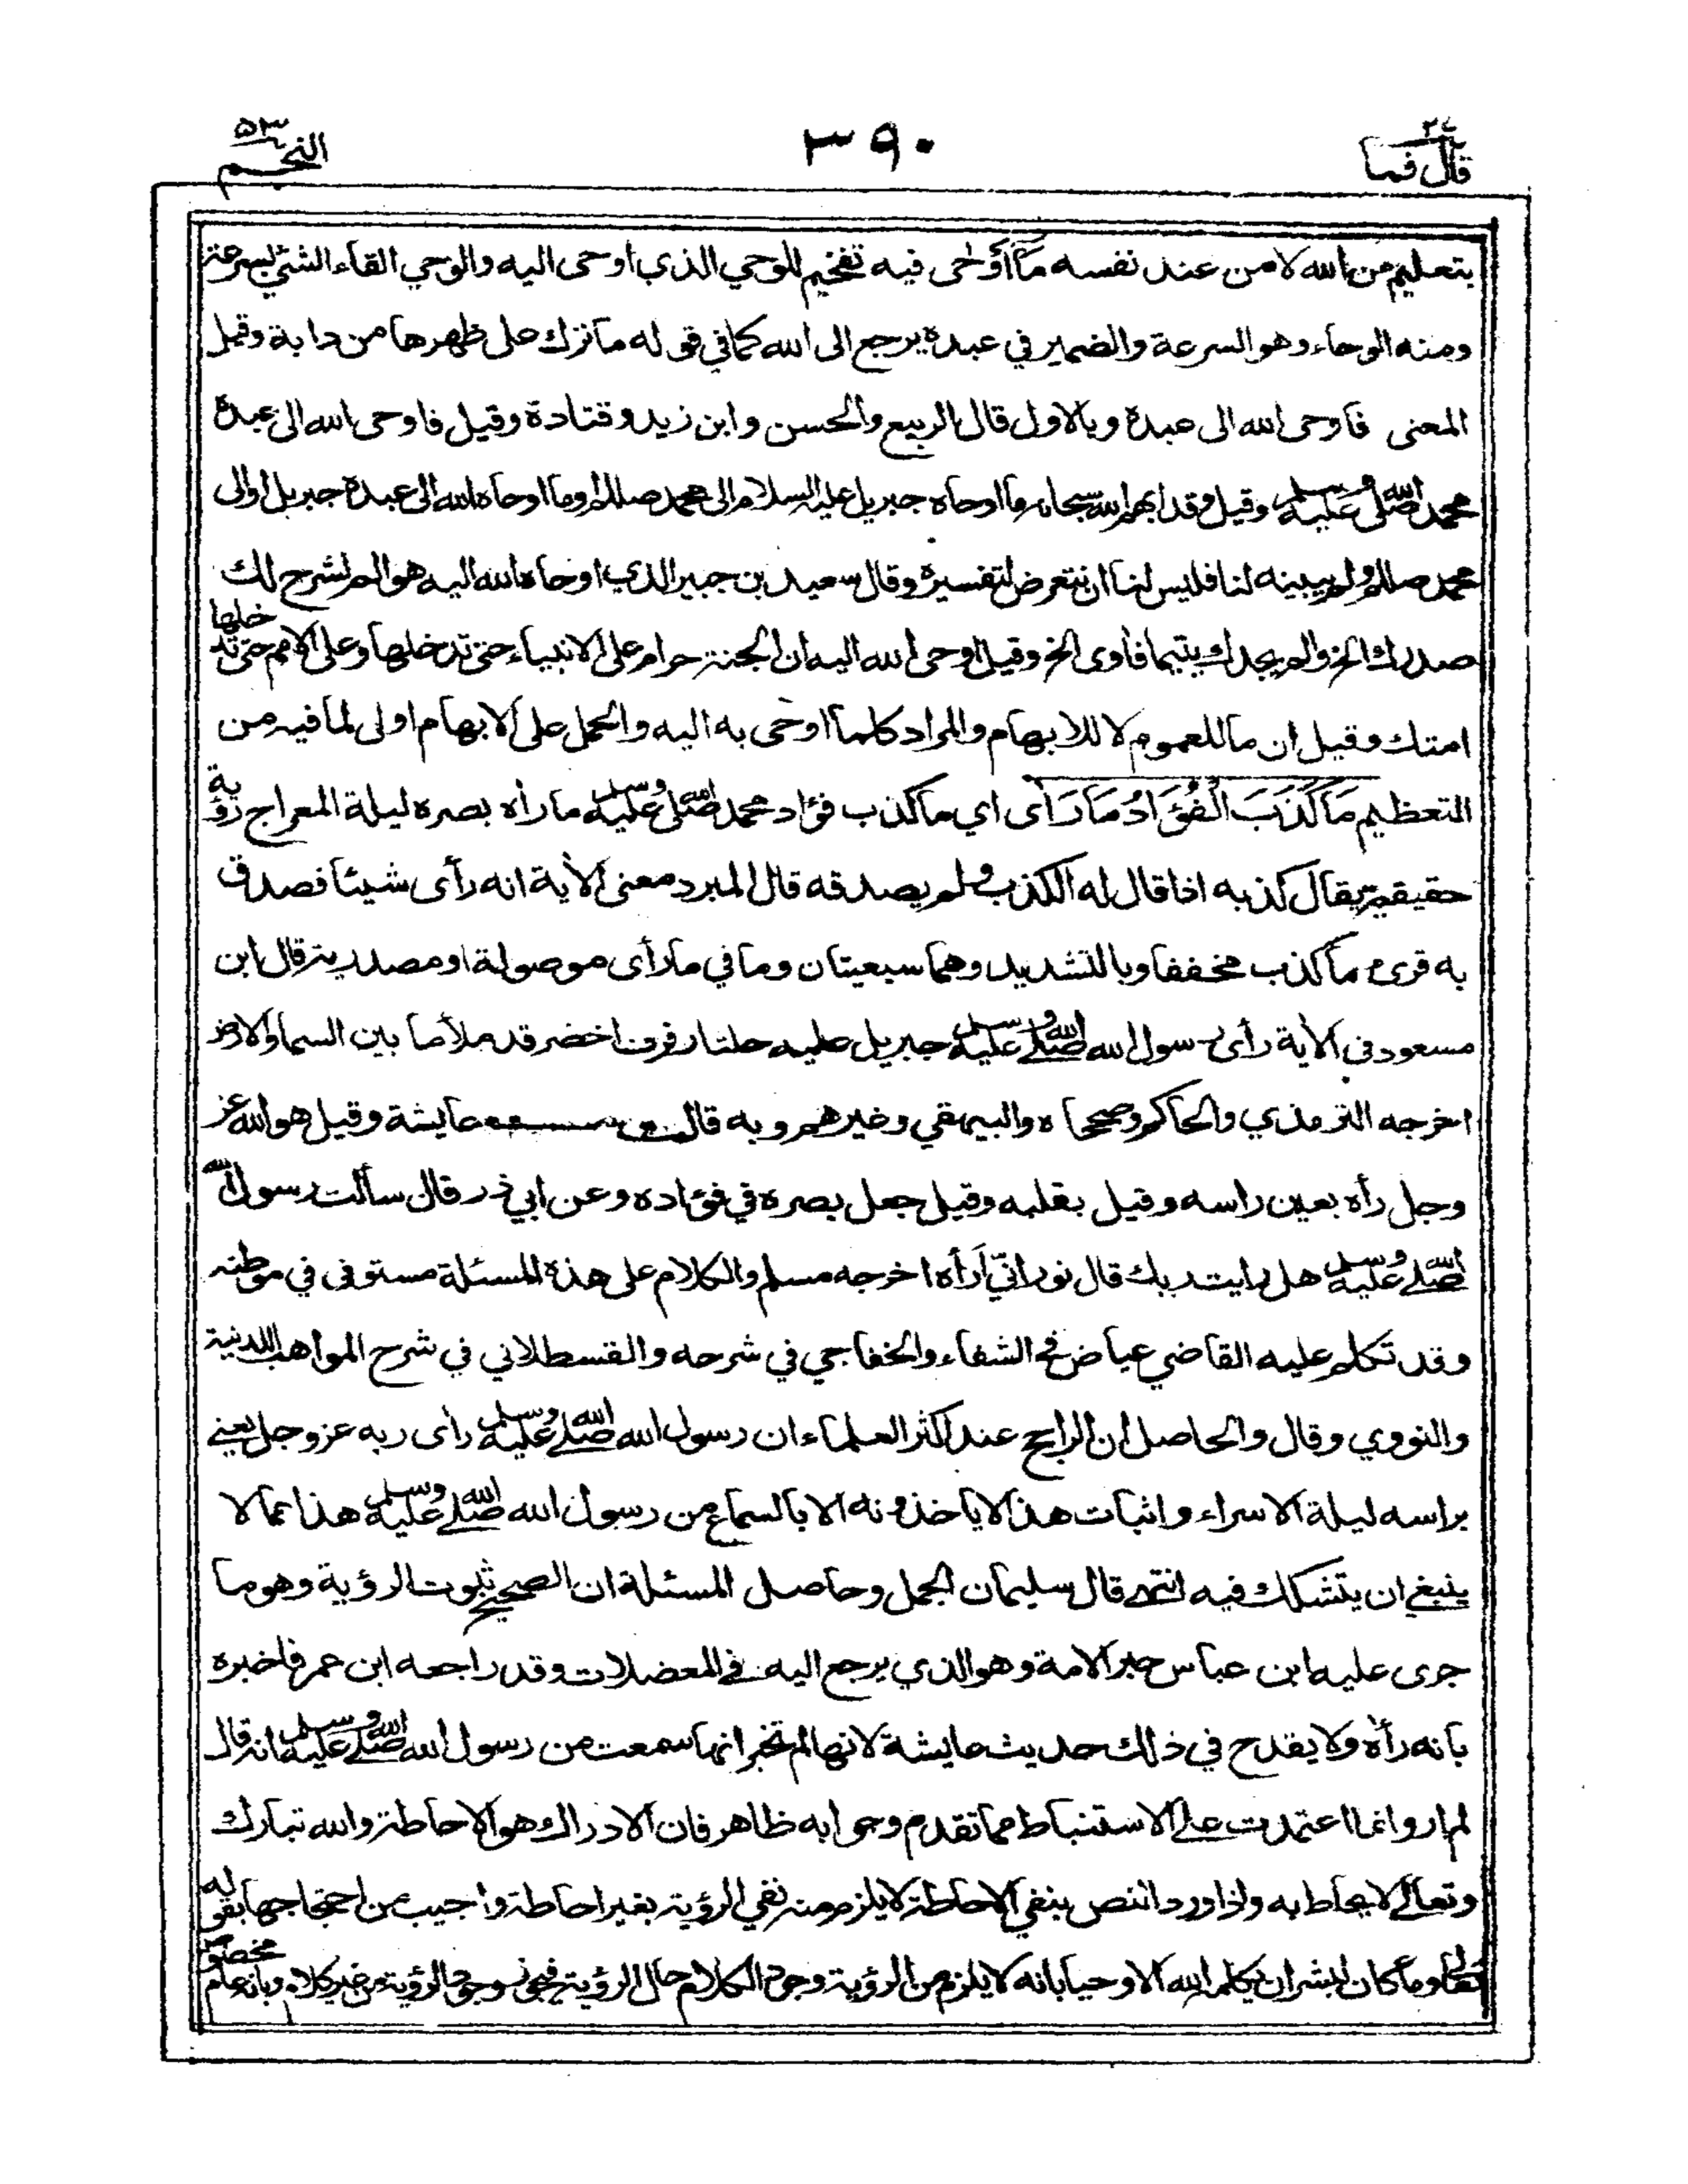 قال فما ٢٧
٣٩٠
النجم ٥٣
بتعليم من الله لا من عند نفسه مَآ أَوْحٰى فيه تفخيم للوحي الذي اوحى اليه والوحي القاء الشئ بسرعة
ومنه الوحاء وهو السرعة والضمير في عبده يرجع الى الله كما في قوله ما ترك على ظهرها من دابة وقيل
المعنى فاوحى الله الى عبده وبالاول قال الربيع والحسن وابن زيد وقتادة وقيل فاوحى الله الى عبده
محمد صلى الله عليه وسلم وقيل وقد ابهم الله سبحانه ما اوحاه جبريل عليه السلام الى محمد صللم وما اوحاه الله الى عبده جبريل او الى
محمد صللم ولم يبينه لنا فليس لنا ان نتعرض لتفسيره وقال سعيد بن جبير الذي اوحاه الله اليه هو الم نشرح لك
صدرك الخ والم يجدك يتيما فأوى الخ وقيل اوحى الله اليه ان الجنة حرام على الانبياء حتى تدخلها وعلى الامم حتى تدخلها
امتك وقيل ان ما للعموم لا للابهام والمراد كلما اوحى به اليه والحمل على الابهام اولى لما فيه من
التعظيم مَا كَذَبَ الْفُؤَادُ مَا رَاٰى اي ما كذب فؤاد محمد صلى الله عليه وسلم ما رأه بصره ليلة المعراج رؤية
حقيقية يقال كذبه اذا قال له الكذب ولم يصدقه قال المبرد معنى الاٰية انه رأى شيئا فصدق
به قرئ ما كذب مخففا وبالتشديد وهما سبعيتان وما في ما رأى موصولة او مصدرية قال ابن
مسعود في الاٰية رأى رسول الله صلى الله عليه وسلم جبريل عليه حلتا رفرف اخضر قد ملأ ما بين السما والارض
اخرجه الترمذي والحاكم وصححاه والبيهقي وغيرهم وبه قالت عايشة وقيل هو الله عز
وجل رأه بعين راسه وقيل بقلبه وقيل جعل بصره في فؤاده وعن ابي ذر قال سألت رسول الله
صلى الله عليه وسلم هل رايت ربك قال نور انّي أراه اخرجه مسلم والكلام على هذه المسئلة مستوفى في موطنه
وقد تكلم عليه القاضي عياض في الشفاء والخفاجي في شرحه والقسطلاني في شرح المواهب اللدنية
والنووي وقال والحاصل ان الراجح عند اكثر العلماء ان رسول الله صلى الله عليه وسلم رأى ربه عزوجل بعيني
براسه ليلة الاسراء واثبات هذا لا ياخذونه الا بالسماع من رسول الله صلى الله عليه وسلم هذا مما لا
ينبغي ان يتشكك فيه انتهى قال سليمان الجمل وحاصل المسئلة ان الصحيح ثبوت الرؤية وهو ما
جرى عليه ابن عباس حبر الامة وهو الذي يرجع اليه في المعضلات وقد راجعه ابن عمر فاخبره
بانه رأه ولا يقدح في ذلك حديث عايشة لانها لم تخبر انها سمعت من رسول الله صلى الله عليه وسلم انه قال
لم ار وانما اعتمدت على الاستنباط مما تقدم وجوابه ظاهر فان الادراك هو الاحاطة والله تبارك
وتعالى لا يحاط به واذا ورد النص بنفي الاحاطة لا يلزم منه نفي الرؤية بغير احاطة واجيب عن احتجاجها بقوله
تعالى وما كان لبشر ان يكلمه الله الا وحيا بانه لا يلزم من الرؤية وجود الكلام حال الرؤية فيجوز وجود الرؤية من غير كلام وبانه عام مخصوص